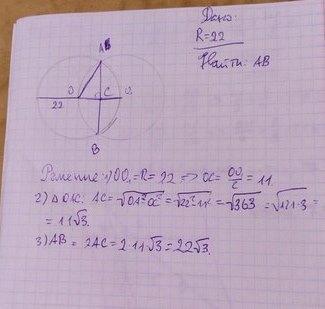 Дано:
R=22
Найти: AB
A
O
C
O₁
22
B
Решение: 1) OO₁=R=22 => OC=OO₁/2=11.
2) △OAC: AC=√OA²-OC²=√22²-11²=√363=√121·3=
=11√3.
3) AB=2AC=2·11√3=22√3.